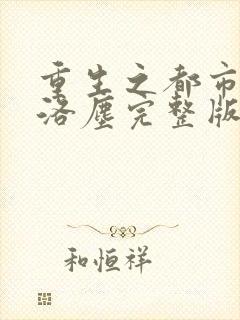 重生之都市
洛尘完整版
和恒祥